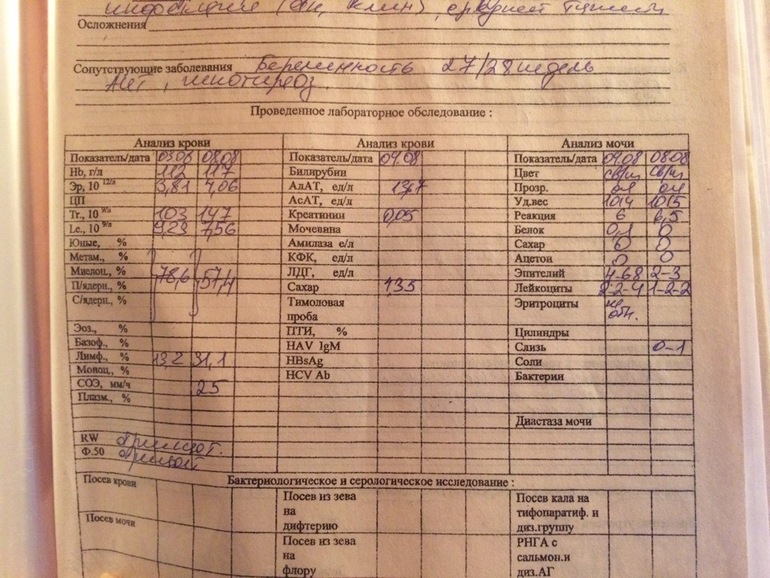 Осложнения
Сопутствующие заболевания Беременность 27/28 недель
гипотиреоз.
Проведенное лабораторное обследование :
Анализ крови Анализ крови Анализ мочи
Показатель/дата 08.08 Показатель/дата 04.08 Показатель/дата 04.08 08.08
Hb, г/л 112 117 Билирубин Цвет св/ж св/ж
Эр, 10 12/л 3,81 4,06 АлАТ, ед/л 13,7 Прозр.
ЦП АсАТ, ед/л Уд.вес 1014 1015
Тr., 10 9/л 103 147 Креатинин 0,05 Реакция 6 6,5
Le., 10 9/л 9,28 7,56 Мочевина Белок 0,1 0
Юные, % Амилаза е/л Сахар 0 0
Метам., % КФК, ед/л Ацетон 0 0
Миелоц., % 78,6 57,4 ЛДГ, ед/л Эпителий 4-6-8 2-3
П/ядерн., % Сахар 4,35 Лейкоциты 2-2-4 1-2-2
С/ядерн., % Тимоловая проба Эритроциты
Эоз., % ПТИ, % Цилиндры
Базоф., % HAV IgM Слизь 0-1
Лимф., % 13,2 31,1 HBsAg Соли
Моноц., % HCV Ab Бактерии
СОЭ, мм/ч 25
Плазм., %
Диастаза мочи
RW
Ф.50
Посев крови Бактериологическое и серологическое исследование :
Посев из зева на дифтерию Посев кала на тифопаратиф. и диз.группу
Посев мочи Посев из зева на флору РНГА с сальмон.и диз.АГ